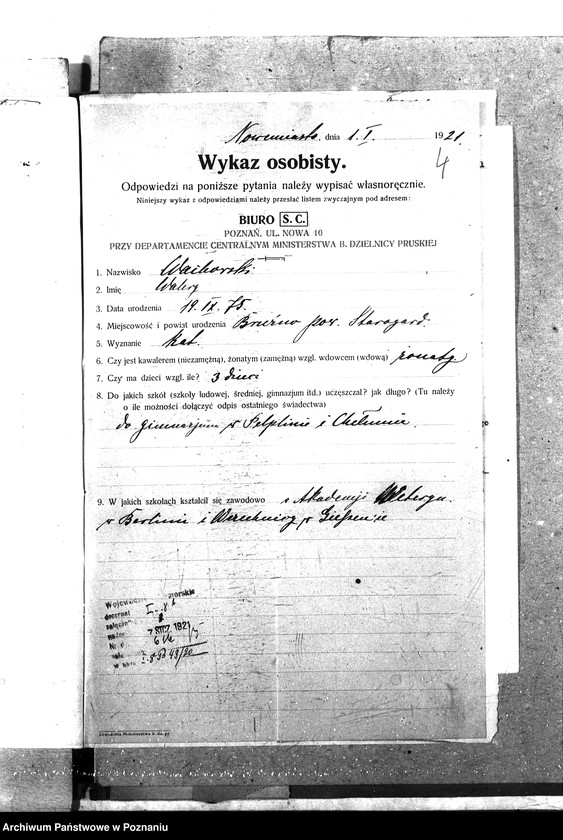 Nowemiasto, dnia 1. I. 1921.
4
Wykaz osobisty.
Odpowiedzi na poniższe pytania należy wypisać własnoręcznie.
Niniejszy wykaz z odpowiedziami należy przesłać listem zwyczajnym pod adresem:
BIURO S. C.
POZNAŃ, UL. NOWA 10
PRZY DEPARTAMENCIE CENTRALNYM MINISTERSTWA B. DZIELNICY PRUSKIEJ
1. Nazwisko
2. Imię Walery
3. Data urodzenia 19. IX. 75.
4. Miejscowość i powiat urodzenia Breźno pow. Starogard.
5. Wyznanie kat.
6. Czy jest kawalerem (niezamężną), żonatym (zamężną) wzgl. wdowcem (wdową) żonaty
7. Czy ma dzieci wzgl. ile? 3 dzieci
8. Do jakich szkół (szkoły ludowej, średniej, gimnazjum itd.) uczęszczał? jak długo? (Tu należy
o ile możności dołączyć odpis ostatniego świadectwa)
do gimnazjum w Pelplinie i Chełmnie.
9. W jakich szkołach kształcił się zawodowo w Akademji Weteryn.
w Berlinie i Wszechnicy w Giessenie
7 STY. 1921
Archiwum Państwowe w Poznaniu